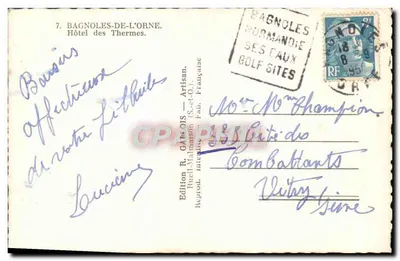 7. BAGNOLES-DE-L'ORNE.
Hôtel des Thermes.
BAGNOLES
NORMANDIE
SES EAUX
GOLF SITES
Baisers
affectueux
de votre
Lucienne
Edition R. GAUBOIS - Artisan.
Rueil-Malmaison (S.-et-O.)
Reprod. interdite. Fab. Française
Mr Mme Champion
Cité des
Combattants
Vitry
Seine
RF
ORNE